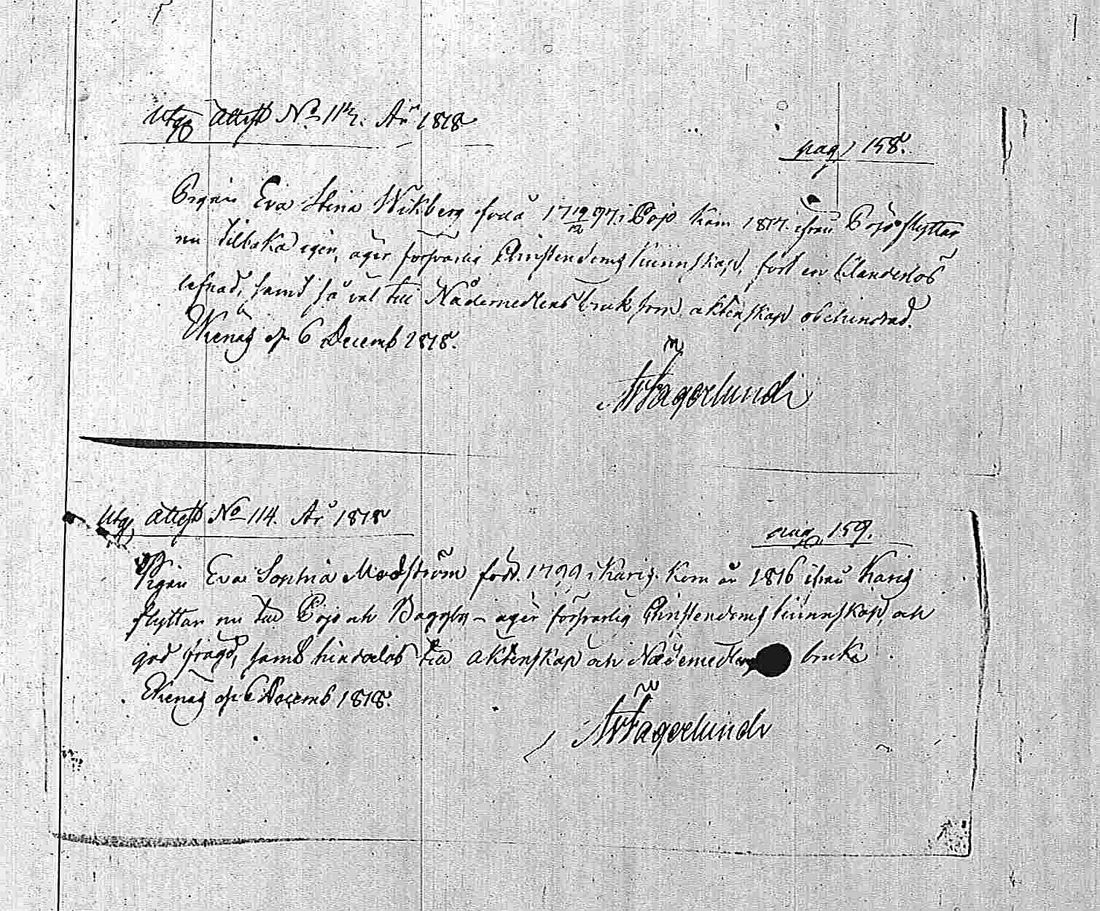 Utg. Attest No 113. År 1818
pag, 158.
Pigan Eva Stina Wikberg född 17 19/12 97. i Pojo kom 1817. ifrån Pojo flyttar
nu tillbaka igen, äger försvarlig Christendoms kunnskap, fört en klanderlös
lefnad, samt så väl till Nådemedlens bruk som äktenskap obehindrad.
Ekenäs d. 6 Decemb 1818.
Fagerlund
Utg. Attest No 114. År 1818
pag, 159.
Pigan Eva Sophia Modström född. 1799 i Karis. kom år 1816 ifrån Karis
flyttar nu till Pojo och Baggby – äger försvarlig Christendoms kunnskap, och
god frägd, samt hinderlös till äktenskap och Nådemedlens bruk
Ekenäs d. 6 Decemb 1818.
Fagerlund